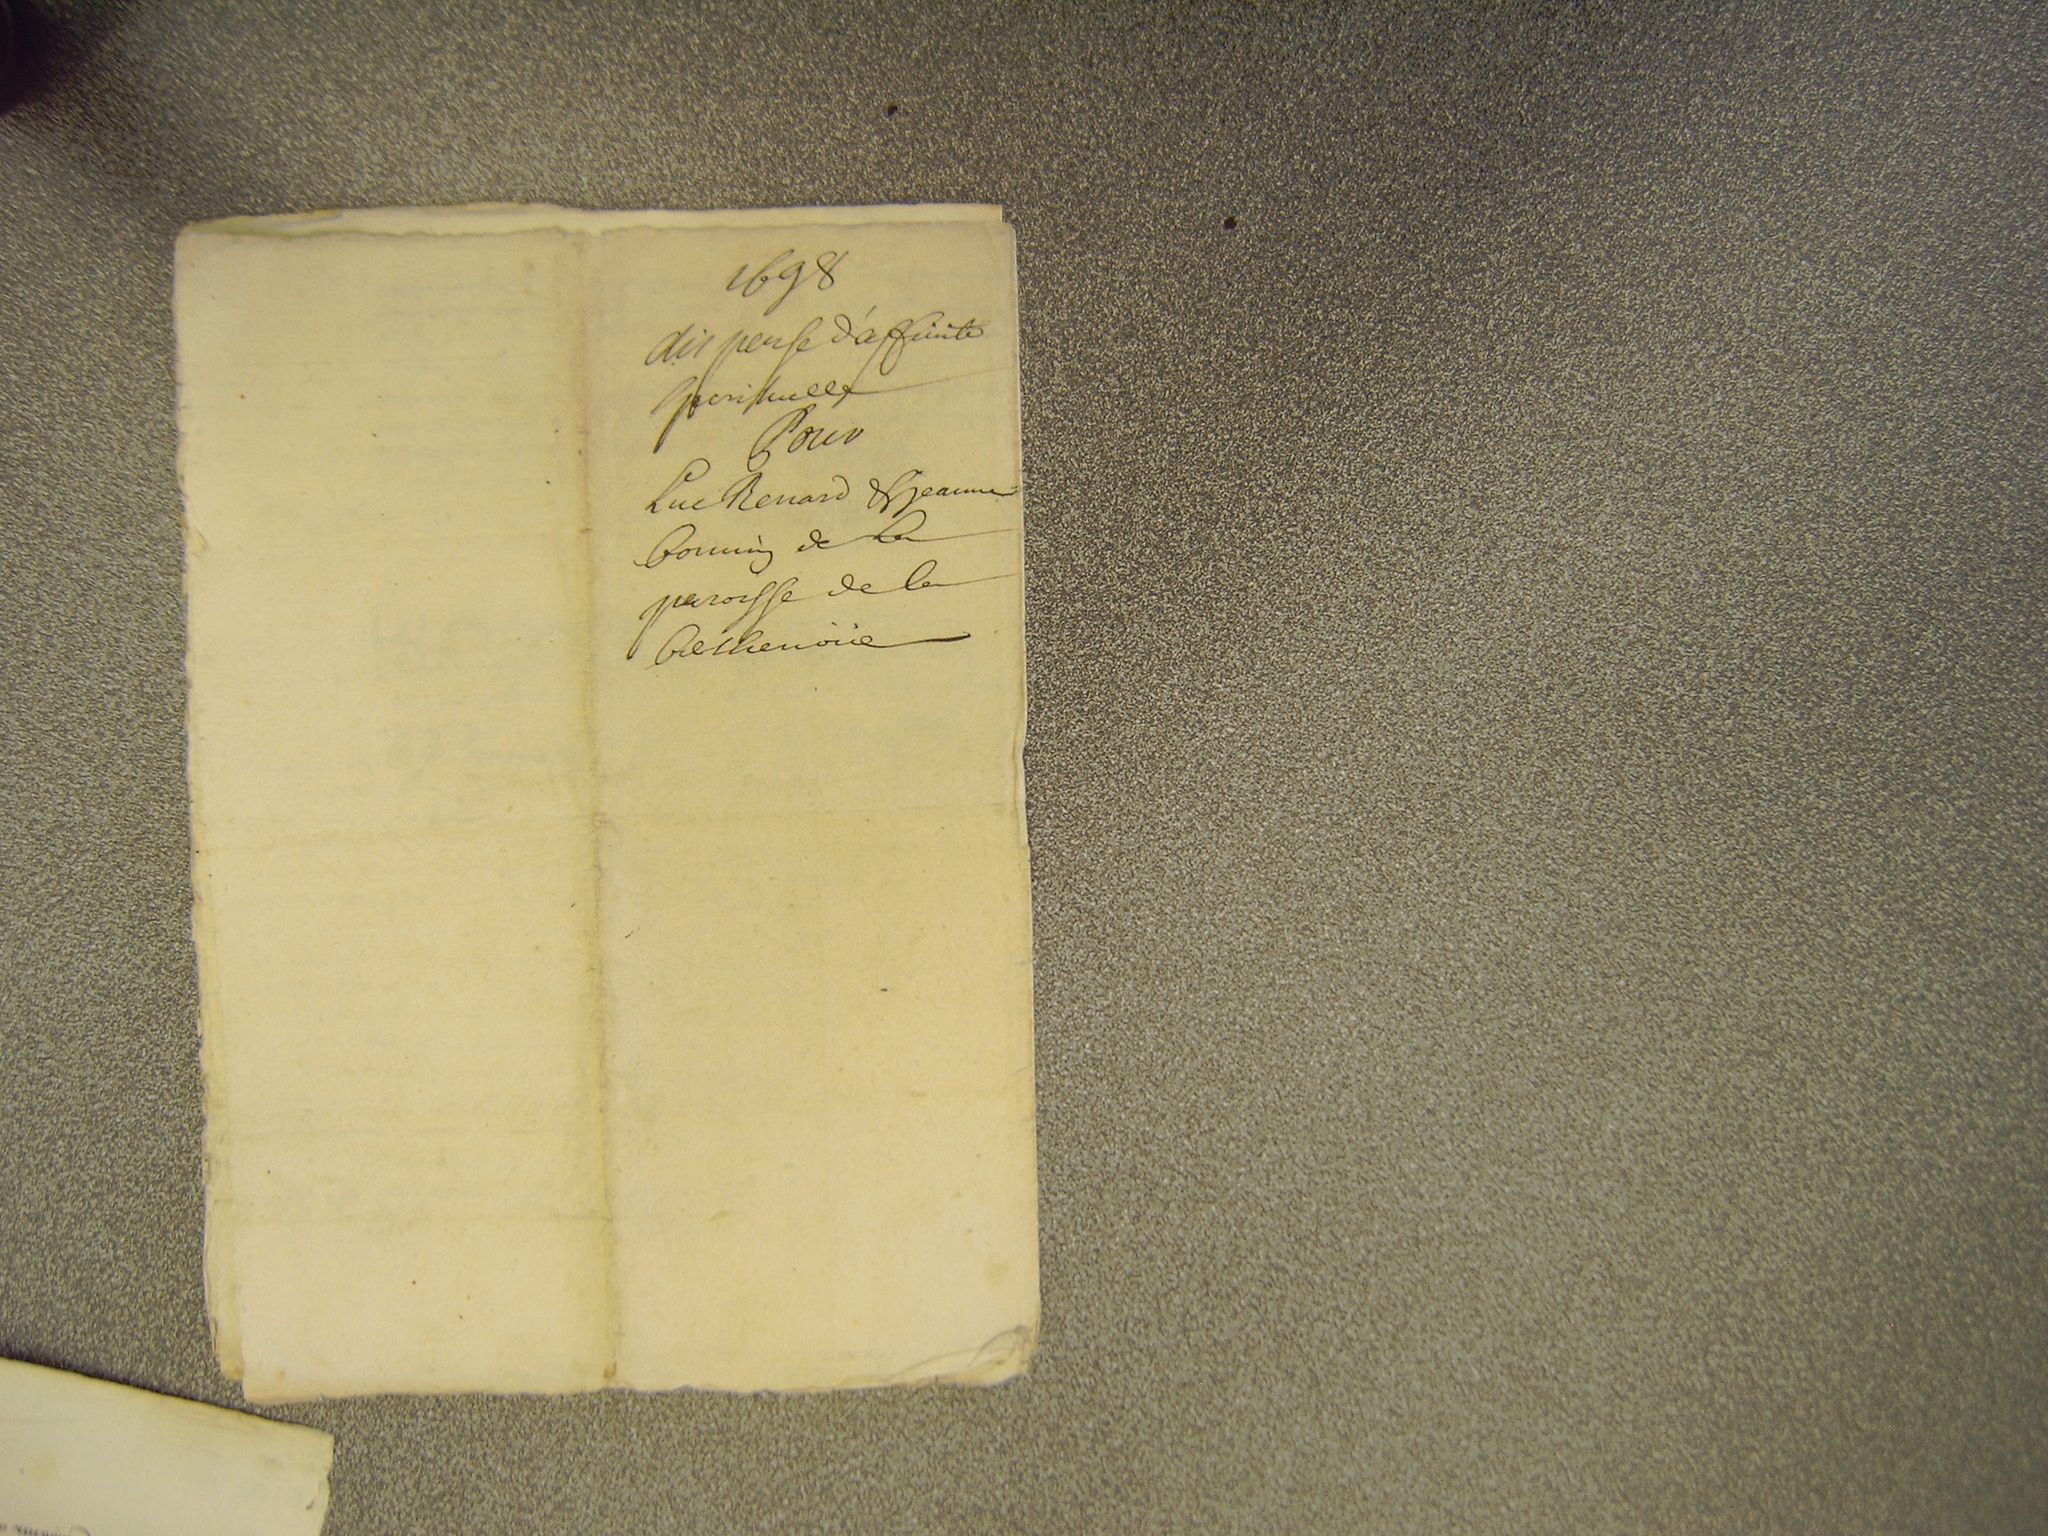 1698
dispense d'affinité
spirituelle
Pour
Luc Renard & Jeanne
bonnin de la
paroisse de la
bethenoüe